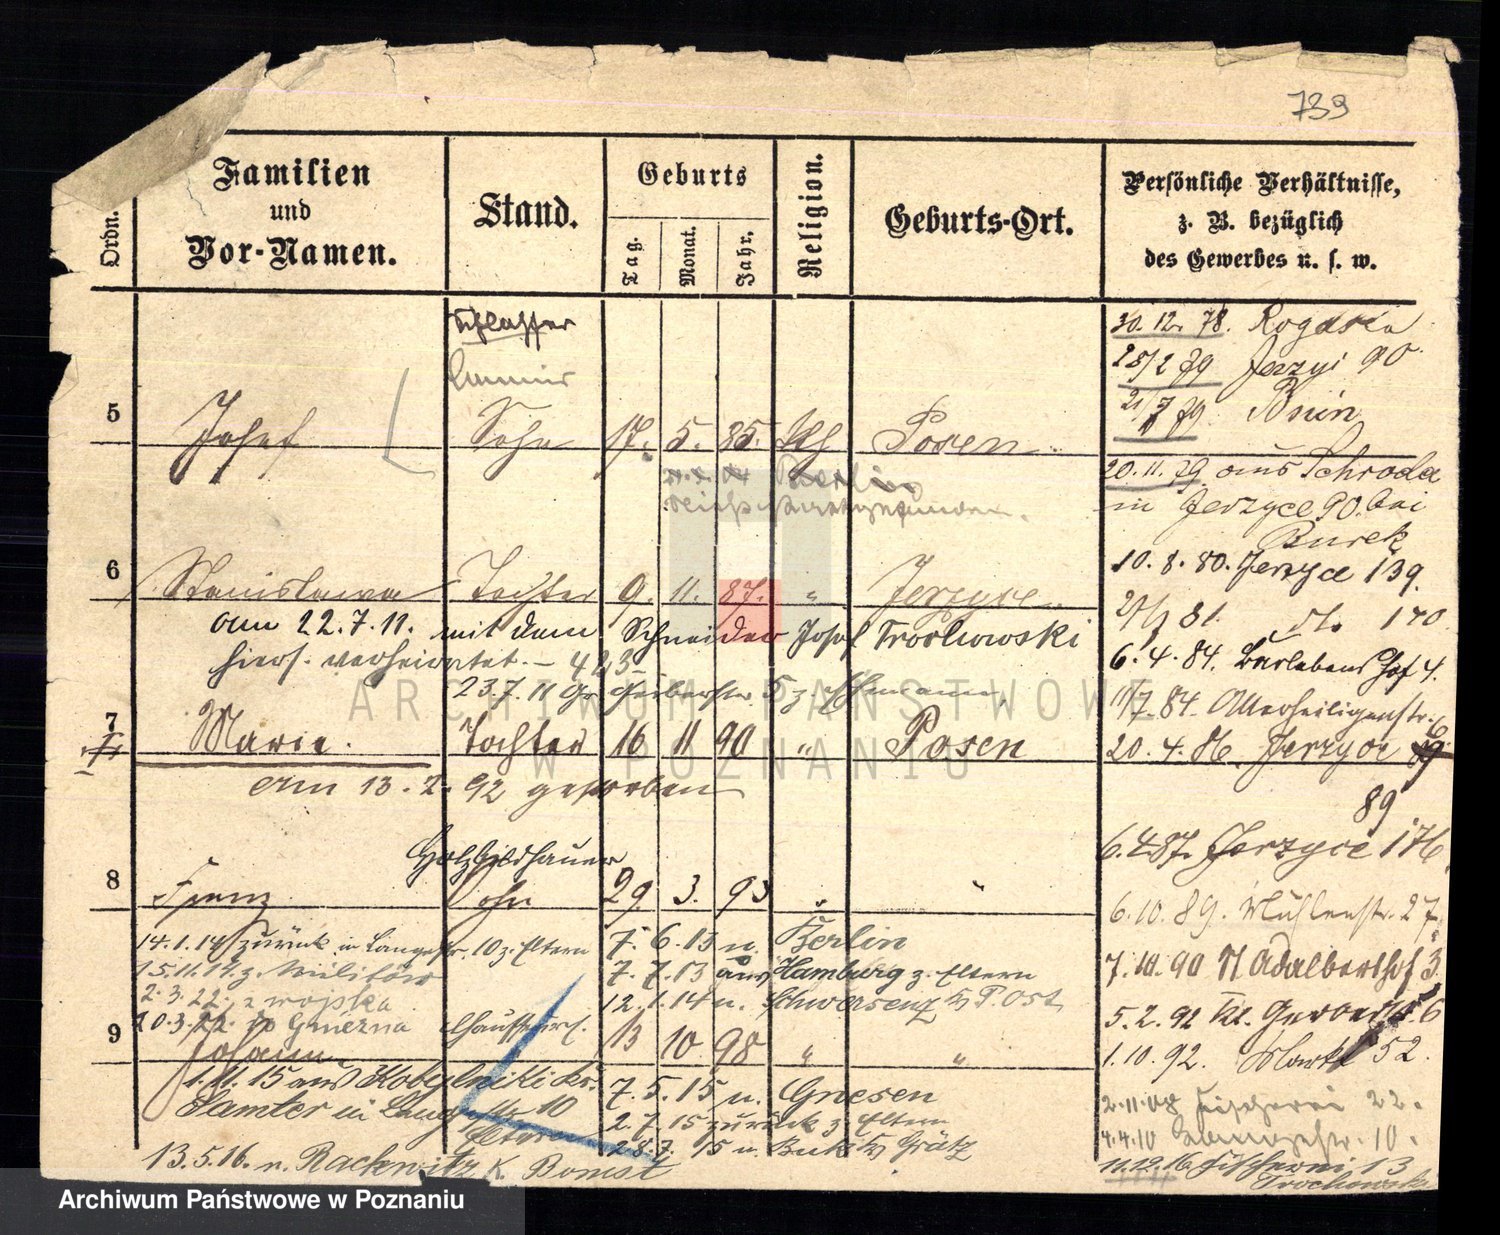 739
Ordn.
Familien
und
Vor-Namen.
Stand.
Geburts
Tag.
Monat.
Jahr.
Religion.
Geburts-Ort.
Persönliche Verhältnisse,
z. B. bezüglich
des Gewerbes u. s. w.
Schlosser
5
Josef
Sohn
17. 5. 85.
Posen
Berlin
30. 12. 78.
28/2 79 Jerzyi 90
21/7 79
20. 11. 79 aus Schroda
in Jerzyce 90. bei
Burek
6
Stanislawa
Tochter
9. 11. 87. "
Jerzyce
am 22. 7. 11. mit dem Schneider Josef Trochowski
hiers. verheiratet. - 423
23. 7. 11 Gr. Gerberstr. 5 z. Ehemann
10. 8. 80. Jerzyce 139.
81. do. 170
6. 4. 84.
11/7. 84. Allerheiligenstr. 6
7
Marie.
Tochter
16 11 90 "
Posen
am 13. 2. 92 gestorben
20. 4. 86. Jerzyce
89
6. 4. 87. Jerzyce 176
Holzbildhauer
8
Franz
Sohn
29. 3. 93 "
"
6. 10. 89. Mühlenstr. 27.
14. 1. 14 zurück in Langestr. 10 z. Eltern
7. 6. 13 n. Berlin
15. 11. 17. z. Militär
7. 7. 13 aus Hamburg z. Eltern
7. 10. 90 St Adalberthof 3.
2. 3. 22. z wojska
12. 1. 14 n. Schwersenz Kr. P. Ost
20. 3. 22. do Gniezna
5. 2. 92 Kl. Gerberstr. 6
9
Johann
Chauffeur
13 10 98 "
"
1. 10. 92. Markt 52.
1. 11. 15 aus Kobylniki Kr.
7. 5. 15 n. Gnesen
Samter in Langestr 10
Eltern
2. 7. 15 zurück z Eltern
28. 7. 15 n. Buk Kr Grätz
Fischerei 22.
4. 4. 10 10.
13. 5. 16. n. Rackwitz K. Bomst
11. 12. 16 Fischerei 13
Trochowska
ARCHIWUM PAŃSTWOWE
W POZNANIU
Archiwum Państwowe w Poznaniu